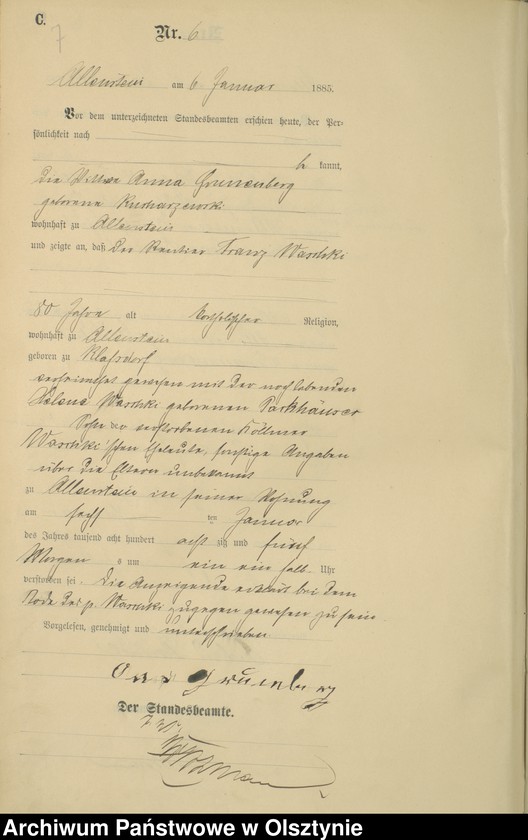 C.
7
Nr. 6
Allenstein am 6 Januar 1885.
Vor dem unterzeichneten Standesbeamten erschien heute, der Per-
sönlichkeit nach
kannt,
die Wittwe Anna Grunenberg
geborene Kucharzewski
wohnhaft zu Allenstein
und zeigte an, daß der Rentier Franz Warschki
80 Jahre alt katholischer Religion,
wohnhaft zu Allenstein
geboren zu Klafsdorf
verheirathet gewesen mit der noch lebenden
Helene Warschki geborenen Parkhäuser
Sohn der verstorbenen Köllmer
Warschki'schen Eheleute, sonstige Angaben
über die Eltern unbekannt
zu Allenstein in seiner Wohnung
am sechsten Januar
des Jahres tausend acht hundert achtzig und fünf
Morgens um ein ein halb Uhr
verstorben sei. Die Anzeigende erklärt bei dem
Tode des p. Warschki zugegen gewesen zu sein.
Vorgelesen, genehmigt und unterschrieben
Grunenberg
Der Standesbeamte.
Archiwum Państwowe w Olsztynie